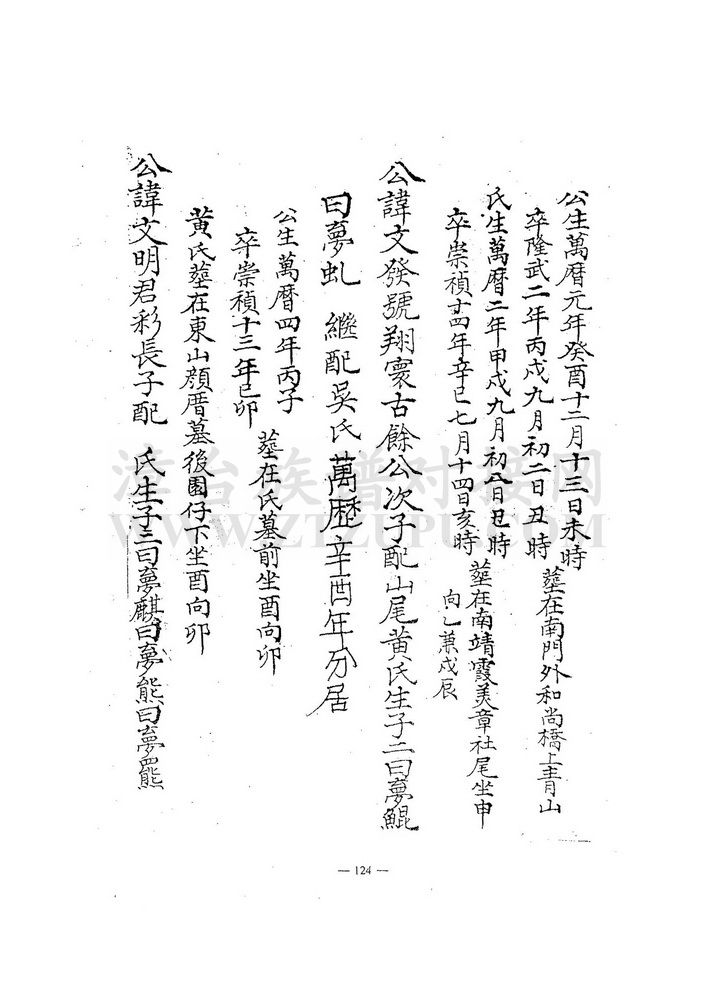 公生萬曆元年癸酉十二月十三日未時
卒隆武二年丙戌九月初二日丑時
塟在南門外和尚橋上青山
氏生萬曆二年甲戌九月初日丑時
卒崇禎十四年辛巳七月十四日亥時
塟在南靖霞美章社尾坐申
向乙兼戌辰
公諱文發號翔寰古餘公次子配山尾黃氏生子二曰夢鯤
曰夢虬 繼配吳氏萬歷辛酉年分居
公生萬曆四年丙子
卒崇禎十三年己卯
塟在氏墓前坐酉向卯
黃氏塟在東山顏厝墓後園仔下坐酉向卯
公諱文明君彩長子配 氏生子三曰夢麒曰夢熊曰夢羆
漳台族谱对接网
WWW.ZTZUPU.COM
— 124 —